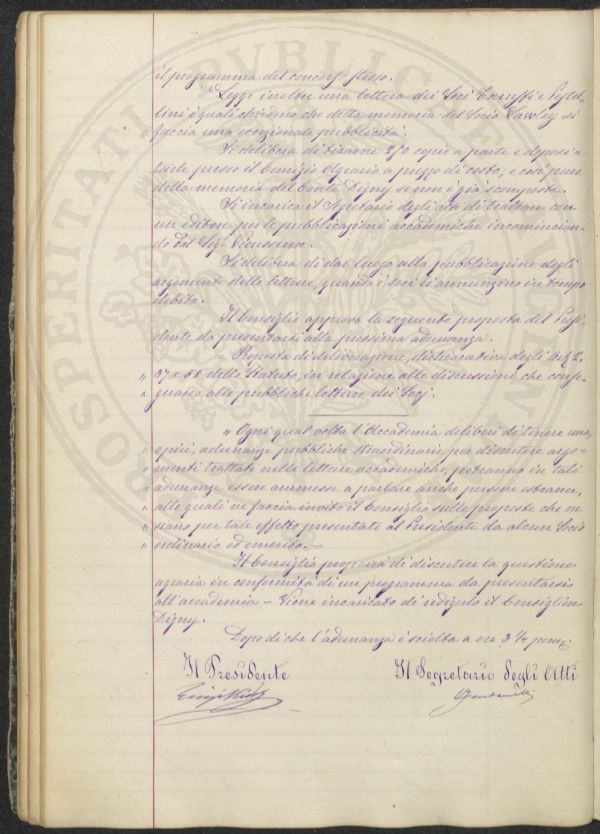 il programma del concorso stesso.
Legge inoltre una lettera dei Soci Caruffi e Pestel-
lini i quali chiedono che detta memoria del Socio Lawley si
faccia una eccezionale pubblicità.
Si delibera di tirarne 250 copie a parte e deposi-
tarle presso il Comizio Agrario a prezzo di costo, e così pure
della memoria del Conte Digny se non è già scomposta.
Si incarica il Segretario degli atti di trattare con
un editore per le pubblicazioni accademiche incomincian-
do dal Sig. Vieusseux.
Si delibera di dar luogo alla pubblicazione degli
argomenti delle letture, quando i soci li annunzino in tempo
debito.
Il Consiglio approva la seguente proposta del Presi-
dente da presentarsi alla prossima adunanza.
Proposta di deliberazione, dichiarativa degli Art. 2.
" 37 e 58 dello Statuto, in relazione alle discussioni che conse-
" guano alle pubbliche letture dei Socj.
" Ogni qual volta l'Accademia deliberi di tenere una
" o più, adunanze pubbliche straordinarie per discutere argo-
" menti trattati nelle letture accademiche, potranno in tali
" adunanze essere ammesse a parlare anche persone estranee,
" alle quali ne faccia invito il Consiglio sulle proposte che ne
" siano per tale effetto presentate al Presidente da alcun Socio
" ordinario od emerito. —
Il Consiglio propone di discutere la questione
agraria in conformità di un programma da presentarsi
all'accademia — Viene incaricato di redigerlo il Consigliere
Digny.
Dopo di che l'adunanza è sciolta a ore 3 ½ pom.
Il Presidente
Il Segretario degli Atti